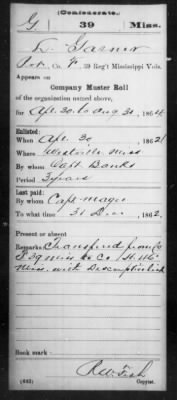 (Confederate.)
G 39 Miss.
D. Garner
Pvt, Co. F, 39 Reg't Mississippi Vols.
Appears on
Company Muster Roll
of the organization named above,
for Apr. 30 to Aug 31, 1864
Enlisted:
When Apr. 30, 1862
Where Westville Miss
By whom Capt. Banks
Period 3 years
Last paid:
By whom Capt. Magee
To what time 31 Dec, 1862.
Present or absent
Remarks: Transfered from Co
F 39 Miss to Co H.
Miss. with Descriptive list
Book mark:
R. W. Fish
(642) Copyist.